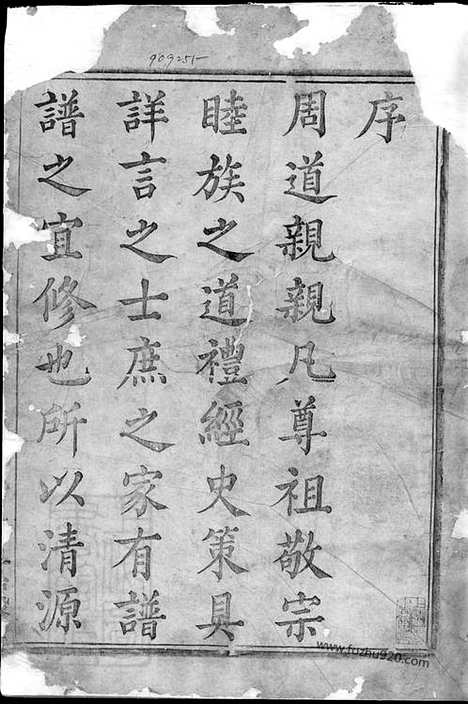 909251-
序
周道親親凡尊祖敬宗
睦族之道禮經史策具
詳言之士庶之家有譜
譜之宜修也所以清源
www.fuzhu920.com